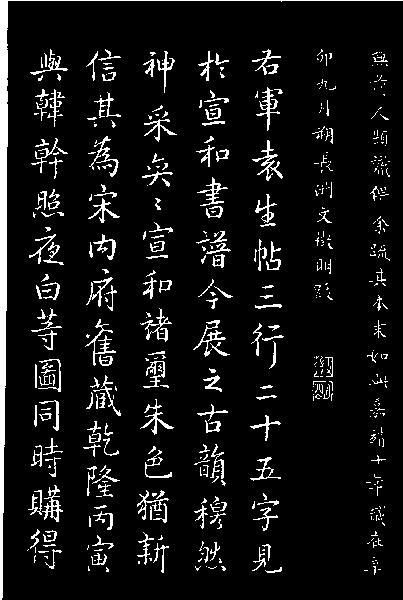 無前人題識俾余疏其本末如此嘉靖十年歲在辛
卯九月朔長洲文徵明跋
右軍袁生帖三行二十五字見
於宣和書譜今展之古韻穆然
神采奕〻宣和諸璽朱色猶新
信其為宋内府舊藏乾隆丙寅
與韓幹照夜白等圖同時購得